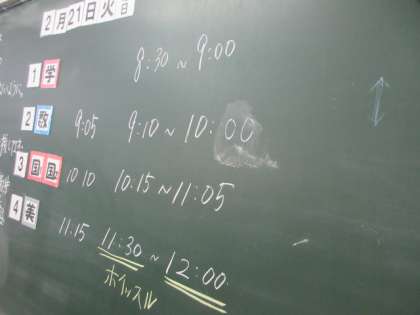 2月21日火
8:30 ~ 9:00
1 学
2 数 9:05 9:10 ~ 10:00
3 国 国 10 10 10:15 ~ 11:05
4 美 11:15 11:30 ~ 12:00
ホイッスル